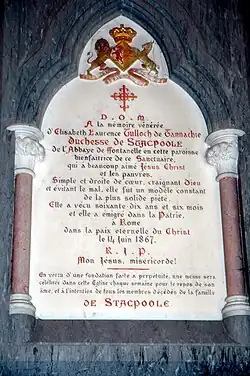 D. O. M.
A la mémoire vénérée
d'Elisabeth Laurence Tulloch de Tannachie
Duchesse de STACPOOLE
de l'Abbaye de Fontanelle en cette paroisse
bienfaitrice de ce Sanctuaire,
qui a beaucoup aimé Jésus Christ
et ses pauvres.
Simple et droite de cœur, craignant Dieu
et évitant le mal, elle fut un modèle constant
de la plus solide piété.
Elle a vécu soixante-dix ans et six mois
et elle a émigré dans la Patrie,
à Rome
dans la paix eternelle du Christ
le 14 Juin 1867.
R. I. P.
Mon Jésus, misericorde!
En vertu d'une fondation faite à perpétuité, une messe sera
célébrée dans cette Eglise chaque semaine pour le repos de son
âme, et à l'intention de tous les membres décédés de la famille
DE STACPOOLE